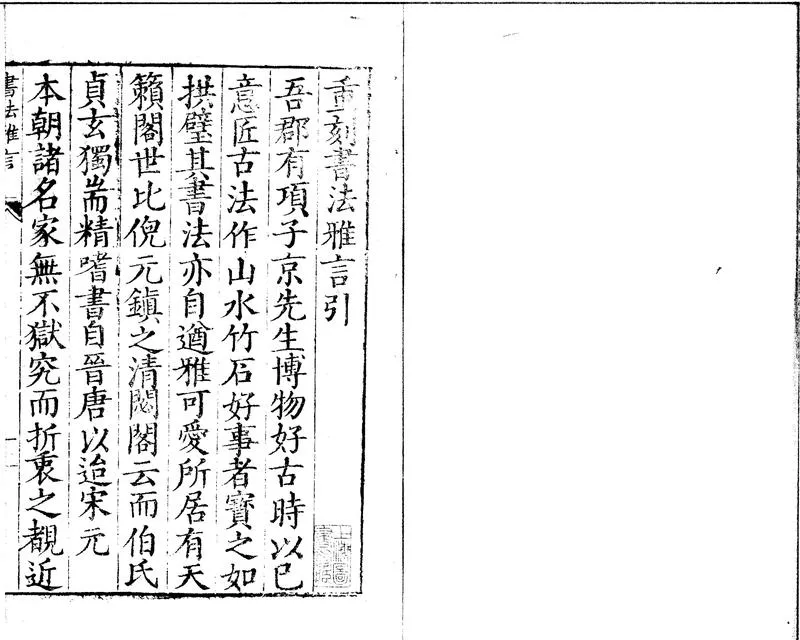 重刻書法雅言引
吾郡有項子京先生博物好古時以己
意匠古法作山水竹石好事者寶之如
拱璧其書法亦自遒雅可愛所居有天
籟閣世比倪元鎮之清閟閣云而伯氏
貞玄獨耑精嗜書自晉唐以迨宋元
本朝諸名家無不獄究而折衷之覩近
書法雅言
一